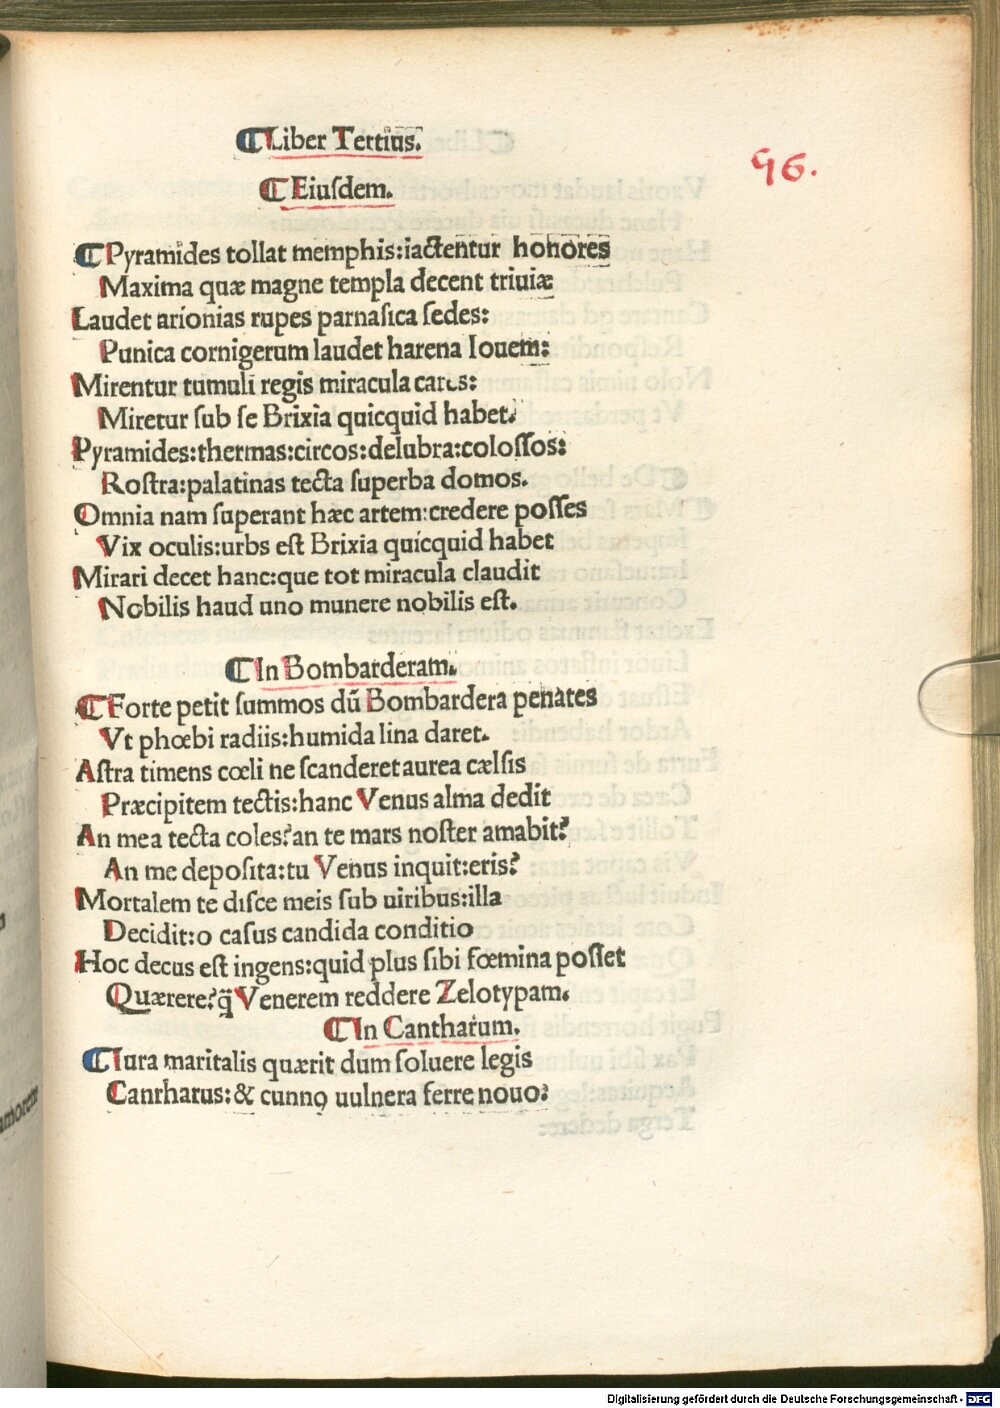 ¶Liber Tertius.
96.
¶Eiuſdem.
¶Pyramides tollat memphis:iactentur honores
Maxima quæ magne templa decent triuiæ
Laudet arionias rupes parnaſica ſedes:
Punica cornigerum laudet harena Iouem:
Mirentur tumuli regis miracula cares:
Miretur ſub ſe Brixia quicquid habet.
Pyramides:thermas:circos:delubra:coloſſos:
Roſtra:palatinas tecta ſuperba domos.
Omnia nam ſuperant hæc artem:credere poſſes
Vix oculis:urbs eſt Brixia quicquid habet
Mirari decet hanc:que tot miracula claudit
Nobilis haud uno munere nobilis eſt.
¶In Bombarderam.
¶Forte petit ſummos dū Bombardera penates
Vt phœbi radiis:humida lina daret.
Aſtra timens cœli ne ſcanderet aurea cælſis
Præcipitem tectis:hanc Venus alma dedit
An mea tecta coles?an te mars noſter amabit?
An me depoſita:tu Venus inquit:eris?
Mortalem te diſce meis ſub uiribus:illa
Decidit:o caſus candida conditio
Hoc decus eſt ingens:quid plus ſibi fœmina poſſet
Quærere?q̃ Venerem reddere Zelotypam.
¶In Cantharum.
¶Iura maritalis quærit dum ſoluere legis
Canrharus:& cunnꝯ uulnera ferre nouo?
amorem
Digitalisierung gefördert durch die Deutsche Forschungsgemeinschaft - DFG